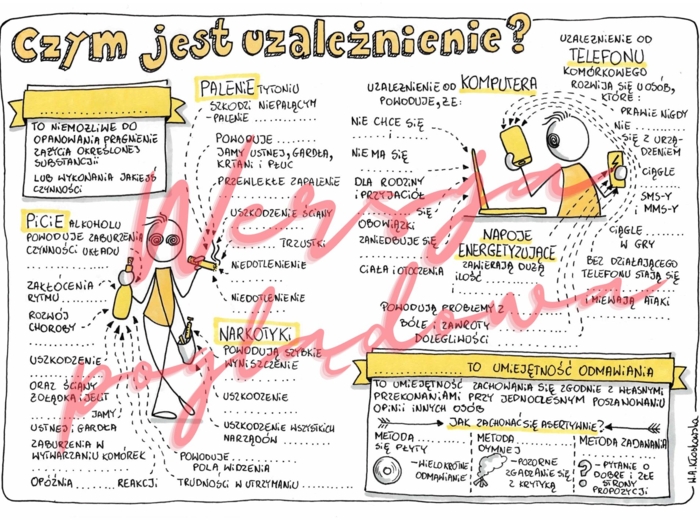 Czym jest uzależnienie?
....................
TO NIEMOŻLIWE DO
OPANOWANIA PRAGNIENIE
ZAŻYCIA OKREŚLONEJ
SUBSTANCJI
LUB WYKONANIA JAKIEJŚ
CZYNNOŚCI
PALENIE TYTONIU
SZKODZI NIEPALĄCYM
-PALENIE ...............
POWODUJE ...........
JAMY USTNEJ, GARDŁA,
KRTANI I PŁUC
PRZEWLEKŁE ZAPALENIE
....................
USZKODZENIE ŚCIANY
....................
........ TRZUSTKI
NIEDOTLENIENIE
....................
NIEDOTLENIENIE
....................
PICIE ALKOHOLU
POWODUJE ZABURZENIA
CZYNNOŚCI UKŁADU
....................
ZAKŁÓCENIA
RYTMU ..........
ROZWÓJ
CHOROBY
....................
USZKODZENIE
....................
ORAZ ŚCIANY
ŻOŁĄDKA I JELIT
............ JAMY
USTNEJ I GARDŁA
ZABURZENIA W
WYTWARZANIU KOMÓREK
....................
OPÓŹNIA ......... REAKCJI
NARKOTYKI
POWODUJĄ SZYBKIE
WYNISZCZENIE
....................
USZKODZENIE
....................
USZKODZENIE WSZYSTKICH
NARZĄDÓW ...............
POWODUJE .........
POLA WIDZENIA
TRUDNOŚCI W UTRZYMANIU ............
UZALEŻNIENIE OD KOMPUTERA
POWODUJE, ŻE:
NIE CHCE SIĘ
.............. I
NIE MA SIĘ
....................
DLA RODZINY
I PRZYJACIÓŁ
............ SIĘ
OBOWIĄZKI
ZANIEDBUJE SIĘ
....................
CIAŁA I OTOCZENIA
UZALEŻNIENIE OD
TELEFONU
KOMÓRKOWEGO
ROZWIJA SIĘ U OSÓB,
KTÓRE:
PRAWIE NIGDY
NIE ............
SIĘ Z URZĄ-
DZENIEM
CIĄGLE
..............
SMS-Y I
MMS-Y
CIĄGLE
............ W GRY
BEZ DZIAŁAJĄCEGO
TELEFONU STAJĄ SIĘ
....................
I MIEWAJĄ ATAKI
....................
NAPOJE
ENERGETYZUJĄCE
ZAWIERAJĄ DUŻĄ
ILOŚĆ ...............
POWODUJĄ PROBLEMY Z ...............
BÓLE I ZAWROTY ...............
DOLEGLIWOŚCI ...............
.................... TO UMIEJĘTNOŚĆ ODMAWIANIA
TO UMIEJĘTNOŚĆ ZACHOWANIA SIĘ ZGODNIE Z WŁASNYMI
PRZEKONANIAMI PRZY JEDNOCZESNYM POSZANOWANIU
OPINII INNYCH OSÓB
JAK ZACHOWAĆ SIĘ ASERTYWNIE?
METODA ..........
SIĘ PŁYTY
-WIELOKROTNE
ODMAWIANIE
METODA ..........
DYMNEJ
-POZORNE
ZGADZANIE SIĘ
Z KRYTYKĄ
METODA ZADAWANIA
....................
-PYTANIE O
DOBRE I ZŁE
STRONY
PROPOZYCJI
Wersja
poglądowa